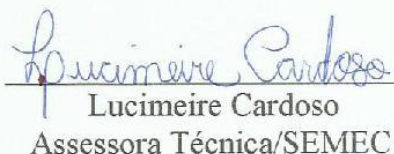 Lucimeire Cardoso
Lucimeire Cardoso
Assessora Técnica/SEMEC